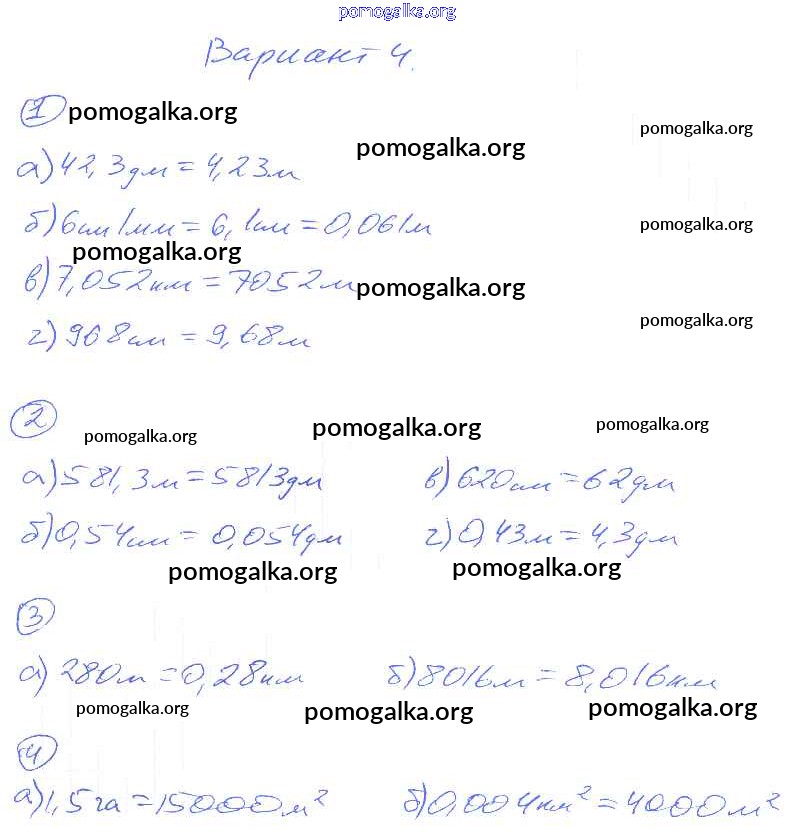 pomogalka.org
Вариант 4.
1 pomogalka.org
pomogalka.org
pomogalka.org
а) 42,3дм = 4,23м
б) 6см 1мм = 6,1см = 0,061м
pomogalka.org
pomogalka.org
в) 7,052км = 7052м
pomogalka.org
г) 968см = 9,68м
pomogalka.org
2
pomogalka.org
pomogalka.org
pomogalka.org
а) 581,3м = 5813дм в) 620см = 62дм
б) 0,54см = 0,054дм г) 0,43м = 4,3дм
pomogalka.org
pomogalka.org
3
а) 280м = 0,28км б) 8016м = 8,016км
pomogalka.org
pomogalka.org
pomogalka.org
4
а) 1,5га = 15000м² б) 0,004км² = 4000м²